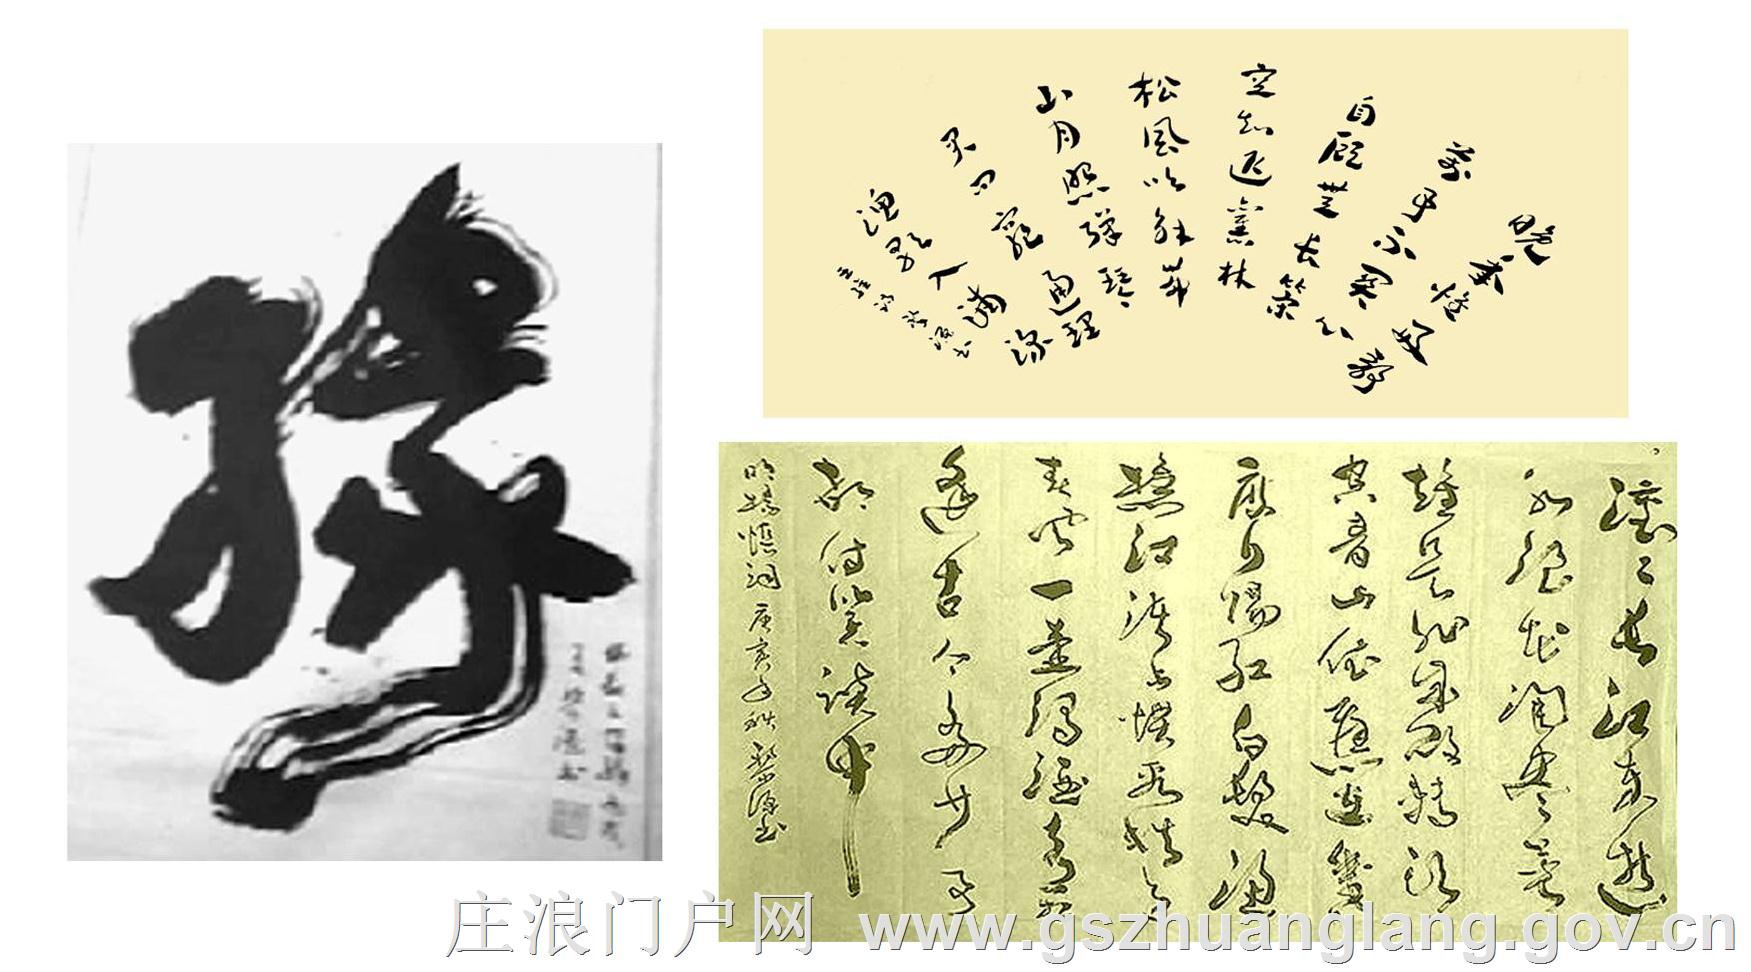 晚年惟好静
万事不关心
自顾无长策
空知返旧林
松风吹解带
山月照弹琴
君问穷通理
渔歌入浦深
滚滚长江东逝
水浪花淘尽英
雄是非成败转头
空青山依旧在几
度夕阳红白发渔
樵江渚上惯看秋月
春风一壶浊酒喜相
逢古今多少事
都付笑谈中
明杨慎词 庚寅年秋
庄浪门户网 www.gszhuanglang.gov.cn